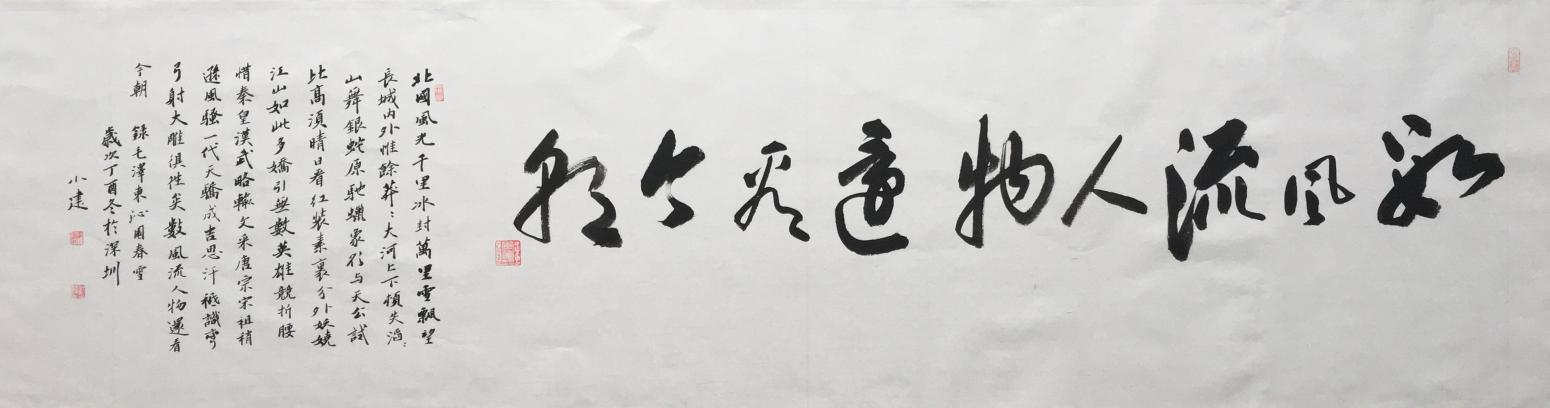 數风流人物還看今朝
北國風光千里冰封萬里雪飄望
長城内外惟餘莽〻大河上下頓失滔〻
山舞銀蛇原馳蠟象欲与天公試
比高須晴日看红裝素裹分外妖嬈
江山如此多嬌引無數英雄競折腰
惜秦皇漢武略輸文采唐宗宋祖稍
遜風騷一代天驕成吉思汗祗識彎
弓射大雕俱往矣數風流人物還看
今朝
錄毛澤東沁园春雪
歲次丁酉冬於深圳
小建